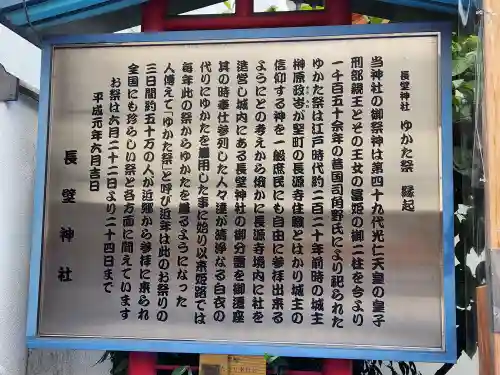 長壁神社 ゆかた祭 縁起
当神社の御祭神は第四十九代光仁天皇の皇子
刑部親王とその王女の富姫の御二柱を今より
一千百五十余年の昔国司角野氏により祀られた
ゆかた祭は江戸時代約二百二十年前時の城主
榊原政岑が竪町の長源寺住職とはかり城主の
信仰する神を一般庶民にも自由に参拝出来る
ようにとの考えから密かに長源寺境内に社を
造営し城内にある長壁神社の御分霊を御遷座
其の時事仕参列した人々達が清浄なる白衣の
代りにゆかたを着用した事に始り以来姫路では
人傳えて「ゆかた祭」と呼び近年は此のお祭りの
毎年此の祭からゆかたを着るようになった
三日間約五十万の人が近郷から参拝に来られ
全国にも珍らしい祭と各方面に聞えています
お祭は六月二十二日より二十四日まで
平成元年六月吉日
長壁神社